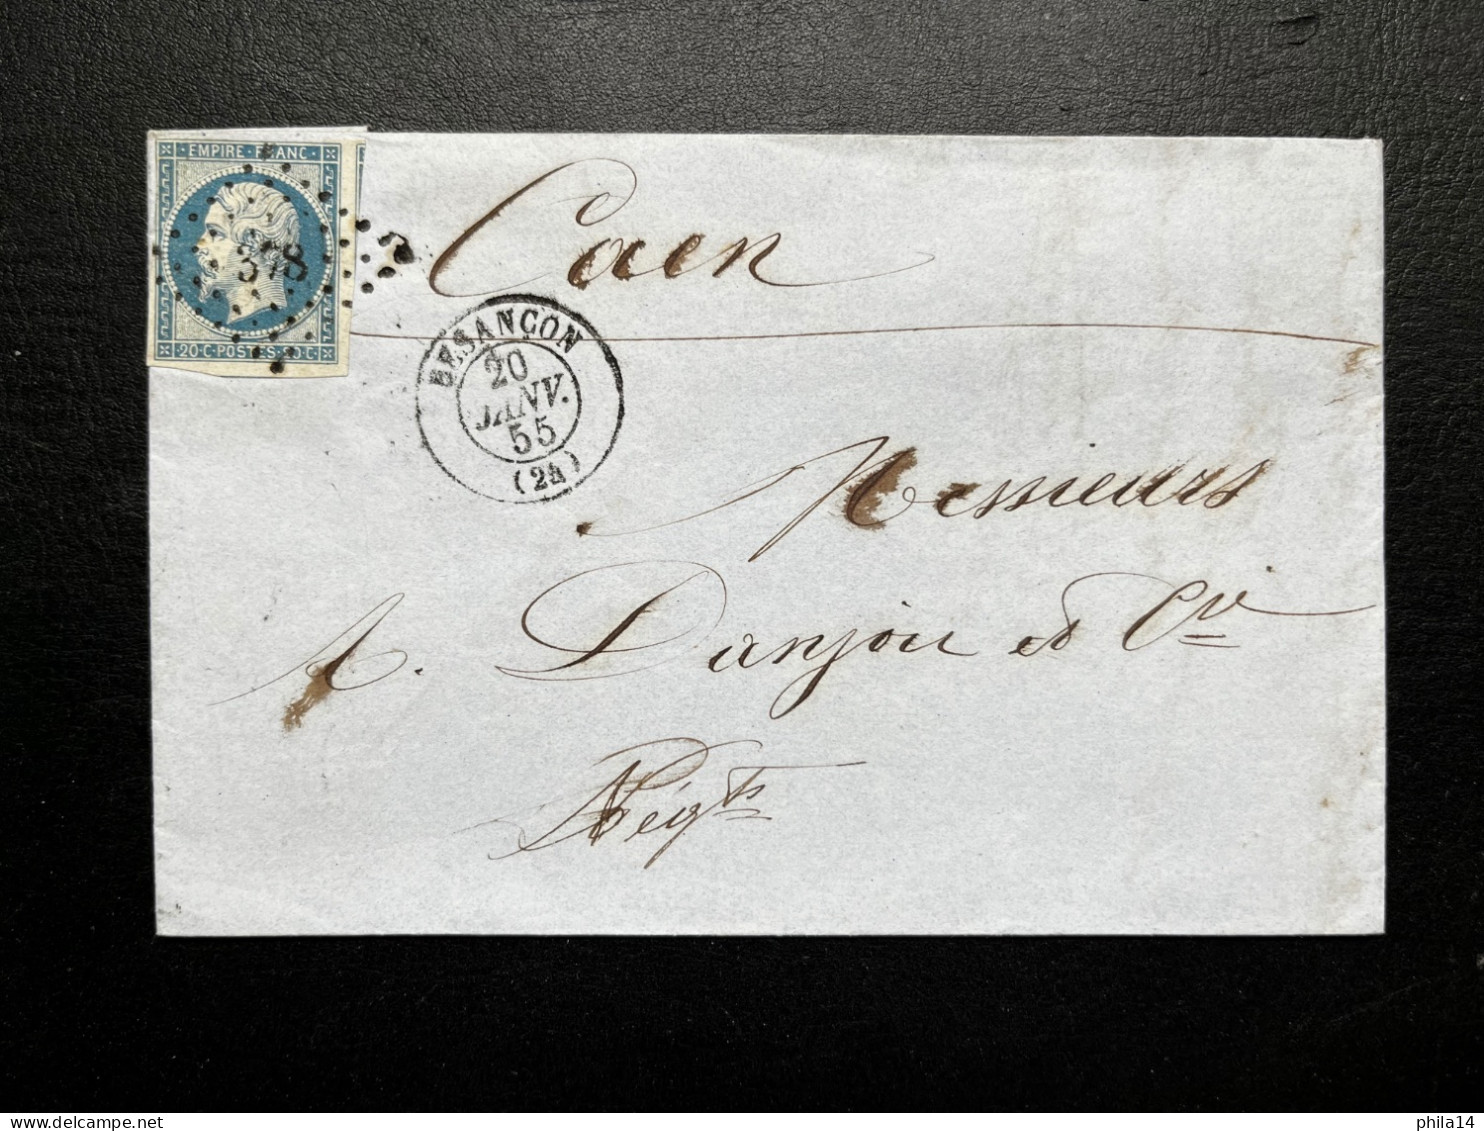 EMPIRE FRANC
378
20·C·POSTES·20·C·
Caen
BESANÇON
20
JANV.
55
(24)
Messieurs
A. Danjou et Cie
Négts
delcampe.net
phila14